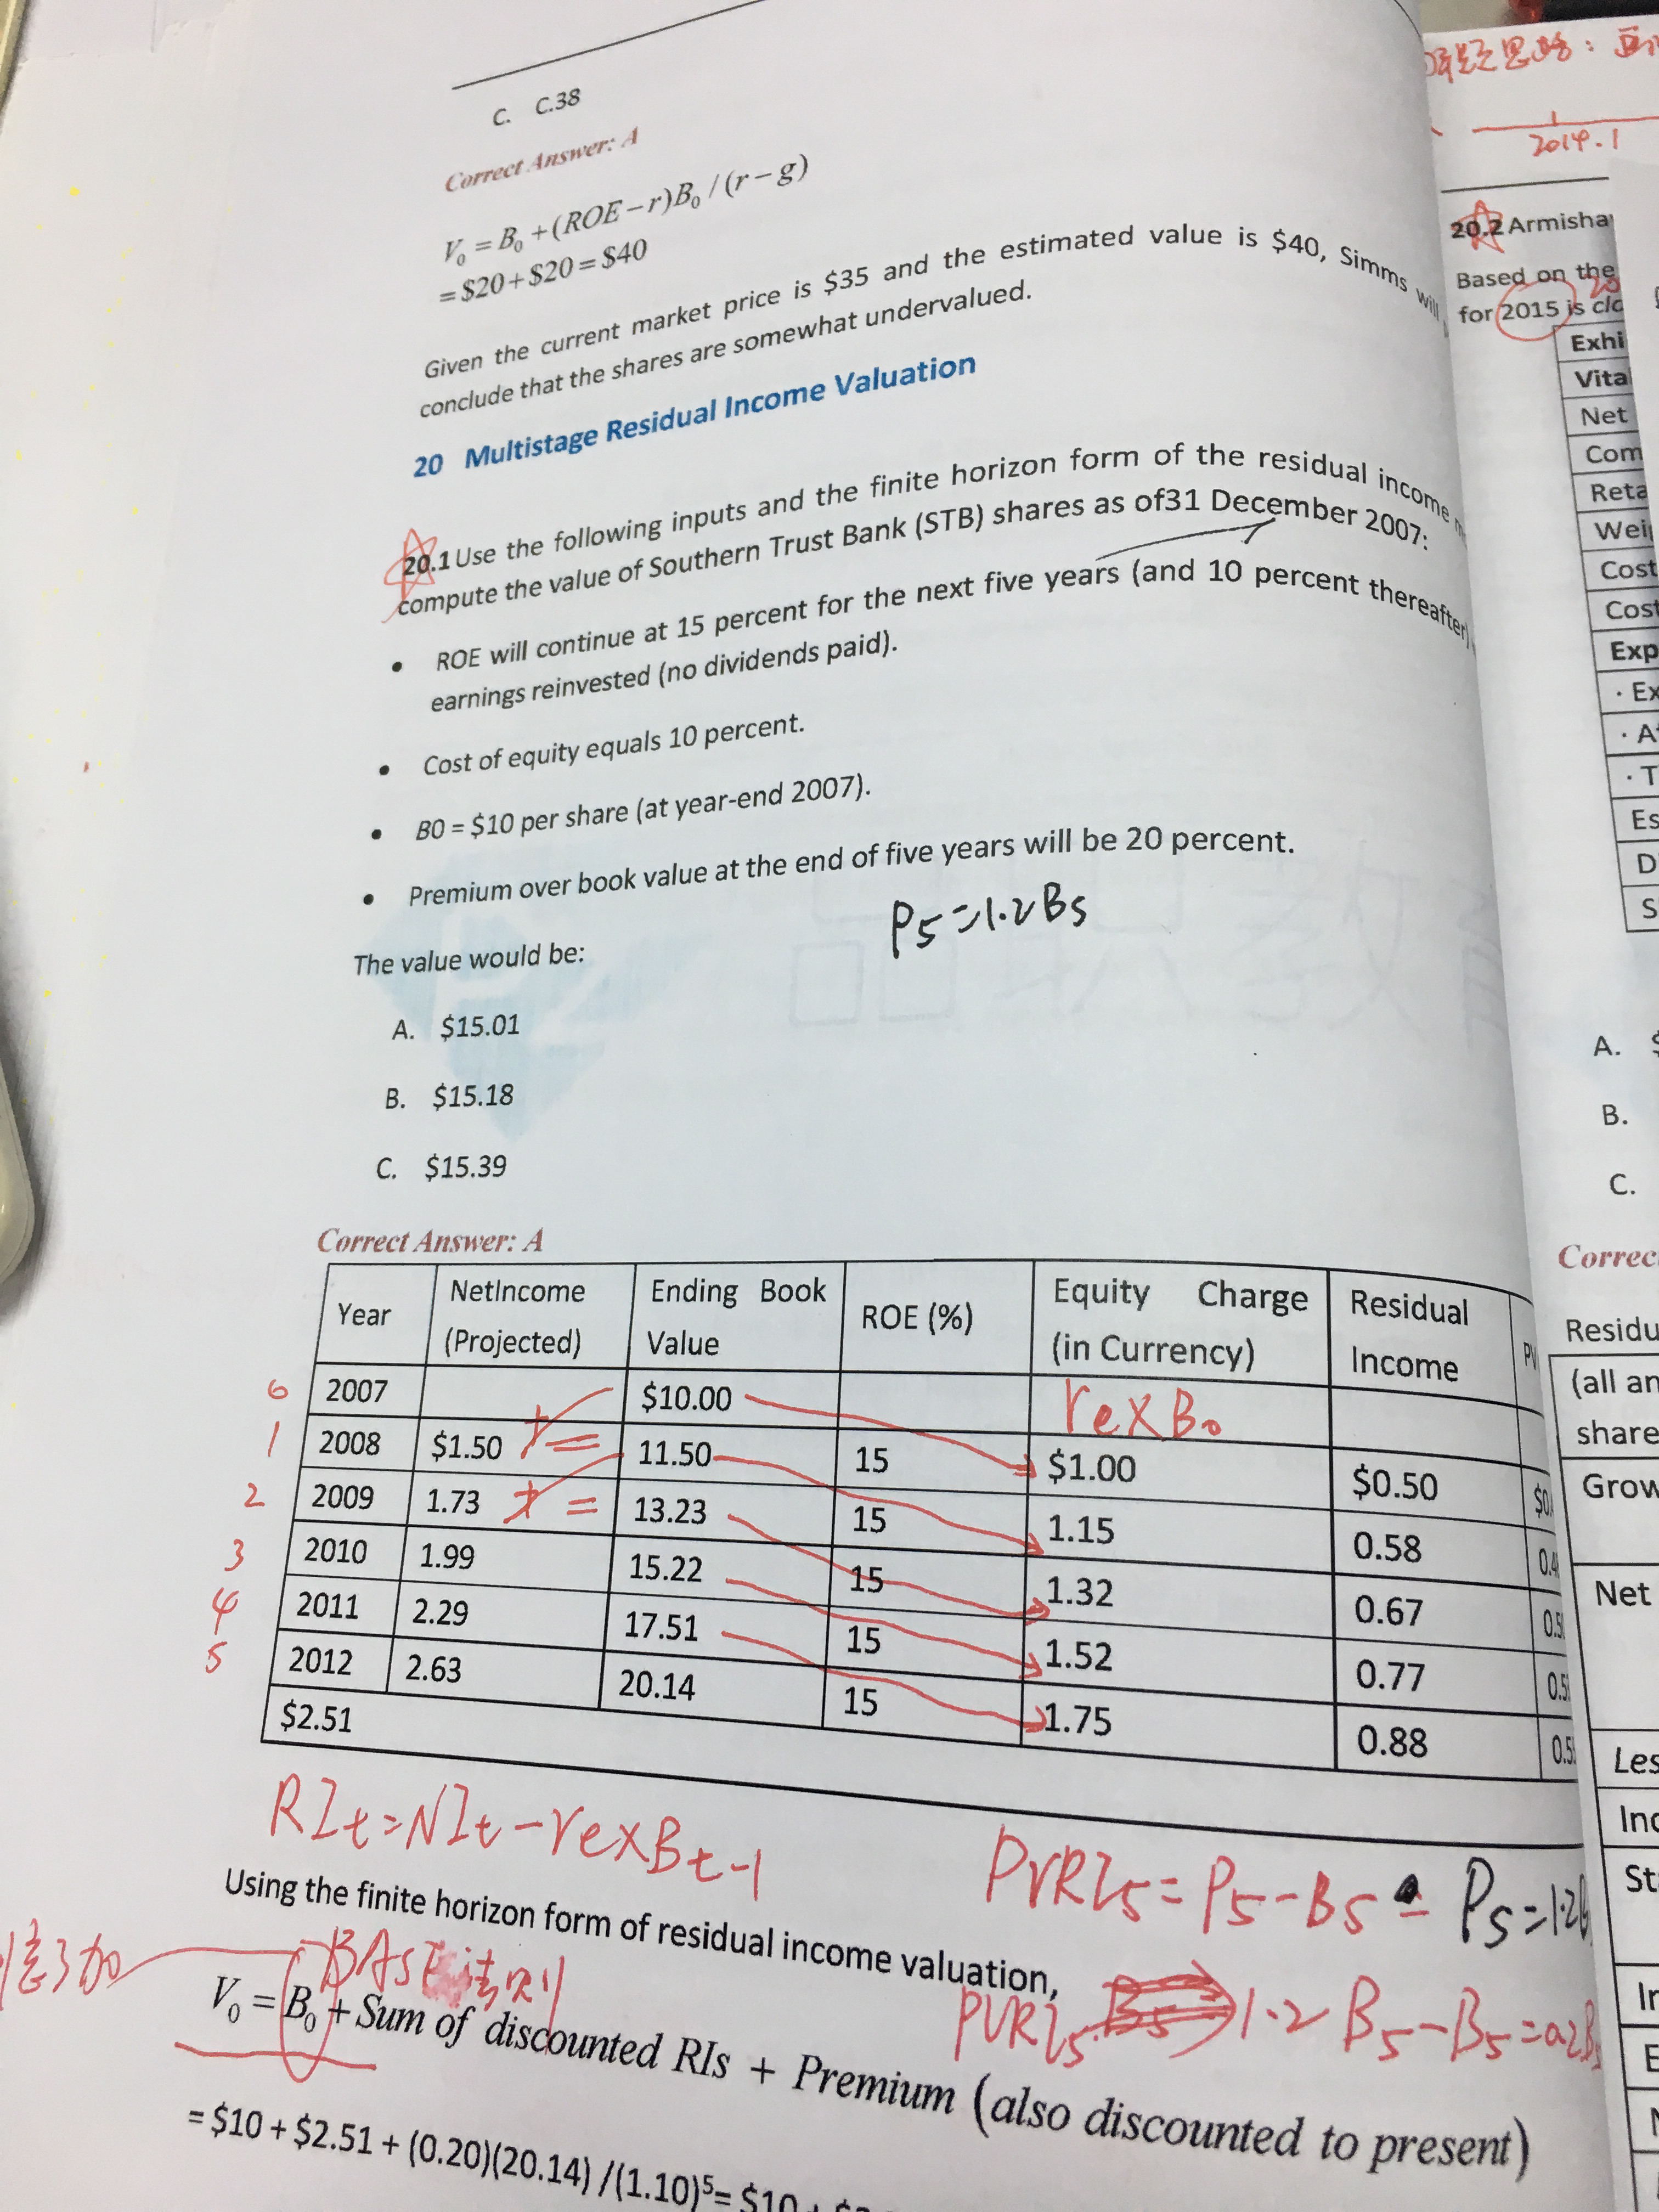 C. C.38
Correct Answer: A
V₀ = B₀ + (ROE − r)B₀ / (r − g)
= $20 + $20 = $40
Given the current market price is $35 and the estimated value is $40, Simms will
conclude that the shares are somewhat undervalued.
20 Multistage Residual Income Valuation
20.1 Use the following inputs and the finite horizon form of the residual income
compute the value of Southern Trust Bank (STB) shares as of31 December 2007:
• ROE will continue at 15 percent for the next five years (and 10 percent thereafter)
earnings reinvested (no dividends paid).
• Cost of equity equals 10 percent.
• B0 = $10 per share (at year-end 2007).
• Premium over book value at the end of five years will be 20 percent.
P5=1.2B5
The value would be:
A. $15.01
B. $15.18
C. $15.39
Correct Answer: A
Year NetIncome (Projected) Ending Book Value ROE (%) Equity Charge (in Currency) Residual Income PV
6 2007 $10.00 re×B₀
1 2008 $1.50 + = 11.50 15 $1.00 $0.50
2 2009 1.73 + = 13.23 15 1.15 0.58
3 2010 1.99 15.22 15 1.32 0.67
4 2011 2.29 17.51 15 1.52 0.77
5 2012 2.63 20.14 15 1.75 0.88
$2.51
RIt=NIt-re×Bt-1
PVRI5=P5-B5
P5=1.2B
Using the finite horizon form of residual income valuation,
BASE法则
PVRI5
1.2B5-B5=0.2B
V₀ = B₀ + Sum of discounted RIs + Premium (also discounted to present)
= $10 + $2.51 + (0.20)(20.14) /(1.10)⁵= $10 +
思路:
2014.1
20.2 Armisha
Based on the
for 2015 is clo
Exhi
Vita
Net
Com
Reta
Wei
Cost
Cost
Exp
· Ex
· A
· T
Es
D
S
A. $
B.
C.
Correc
Residu
(all an
share
Grow
Net
Les
Inc
St
In
E